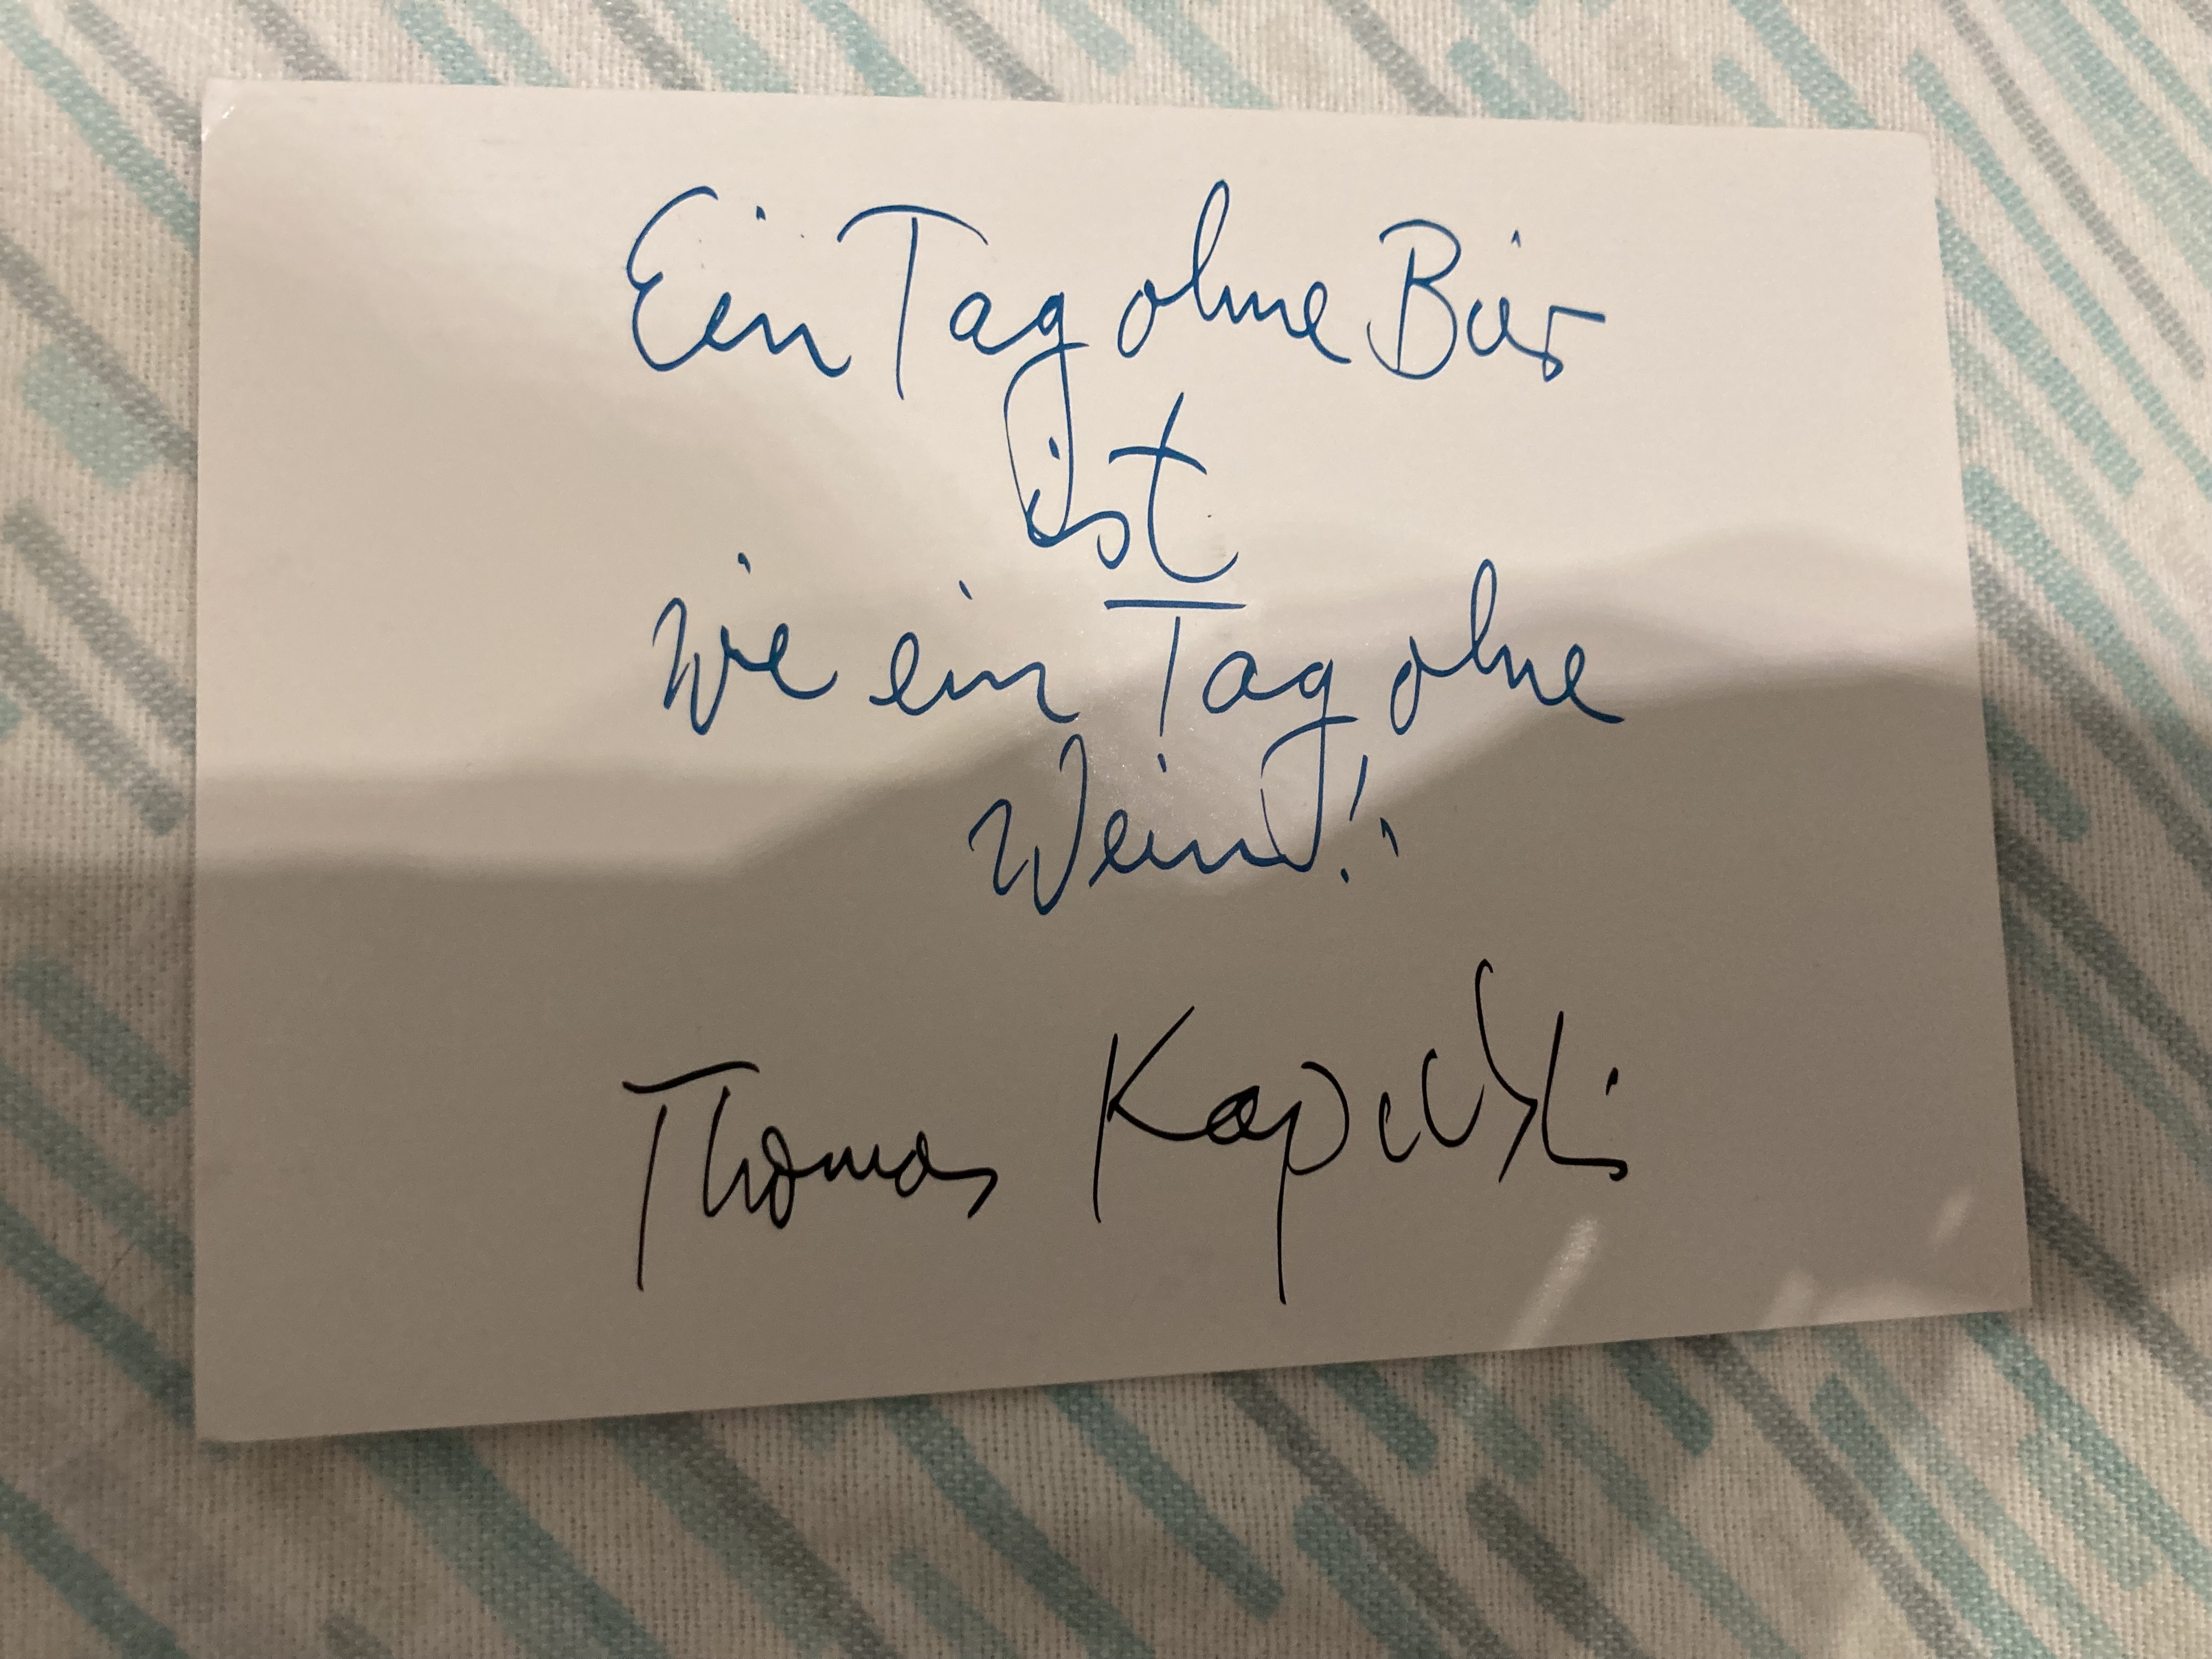 Ein Tag ohne Bier
ist
wie ein Tag ohne
Wein!
Thomas Kapielski